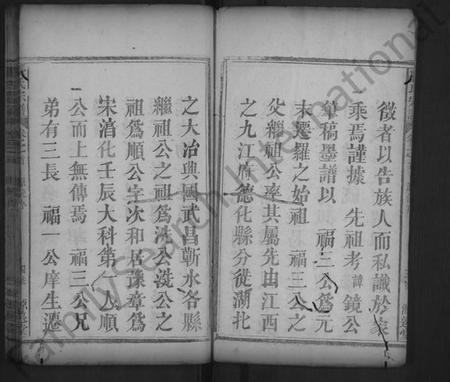 徵者以告族人而私識於家
乘焉謹據 先祖考諱鏡公
草稿墨譜以 福三公為元
末遷羅之始祖 福三公之
父釋祖公率其屬先由江西
之九江府德化縣分徙湖北
之大冶興國武昌蘄水各縣
繼祖公之祖為洪公洗公之
祖為順公字次和居豫章為
宋淳化壬辰大科第一人順
公而上無傳焉 福三公兄
弟有三長 福一公庠生遷
FamilySearch International